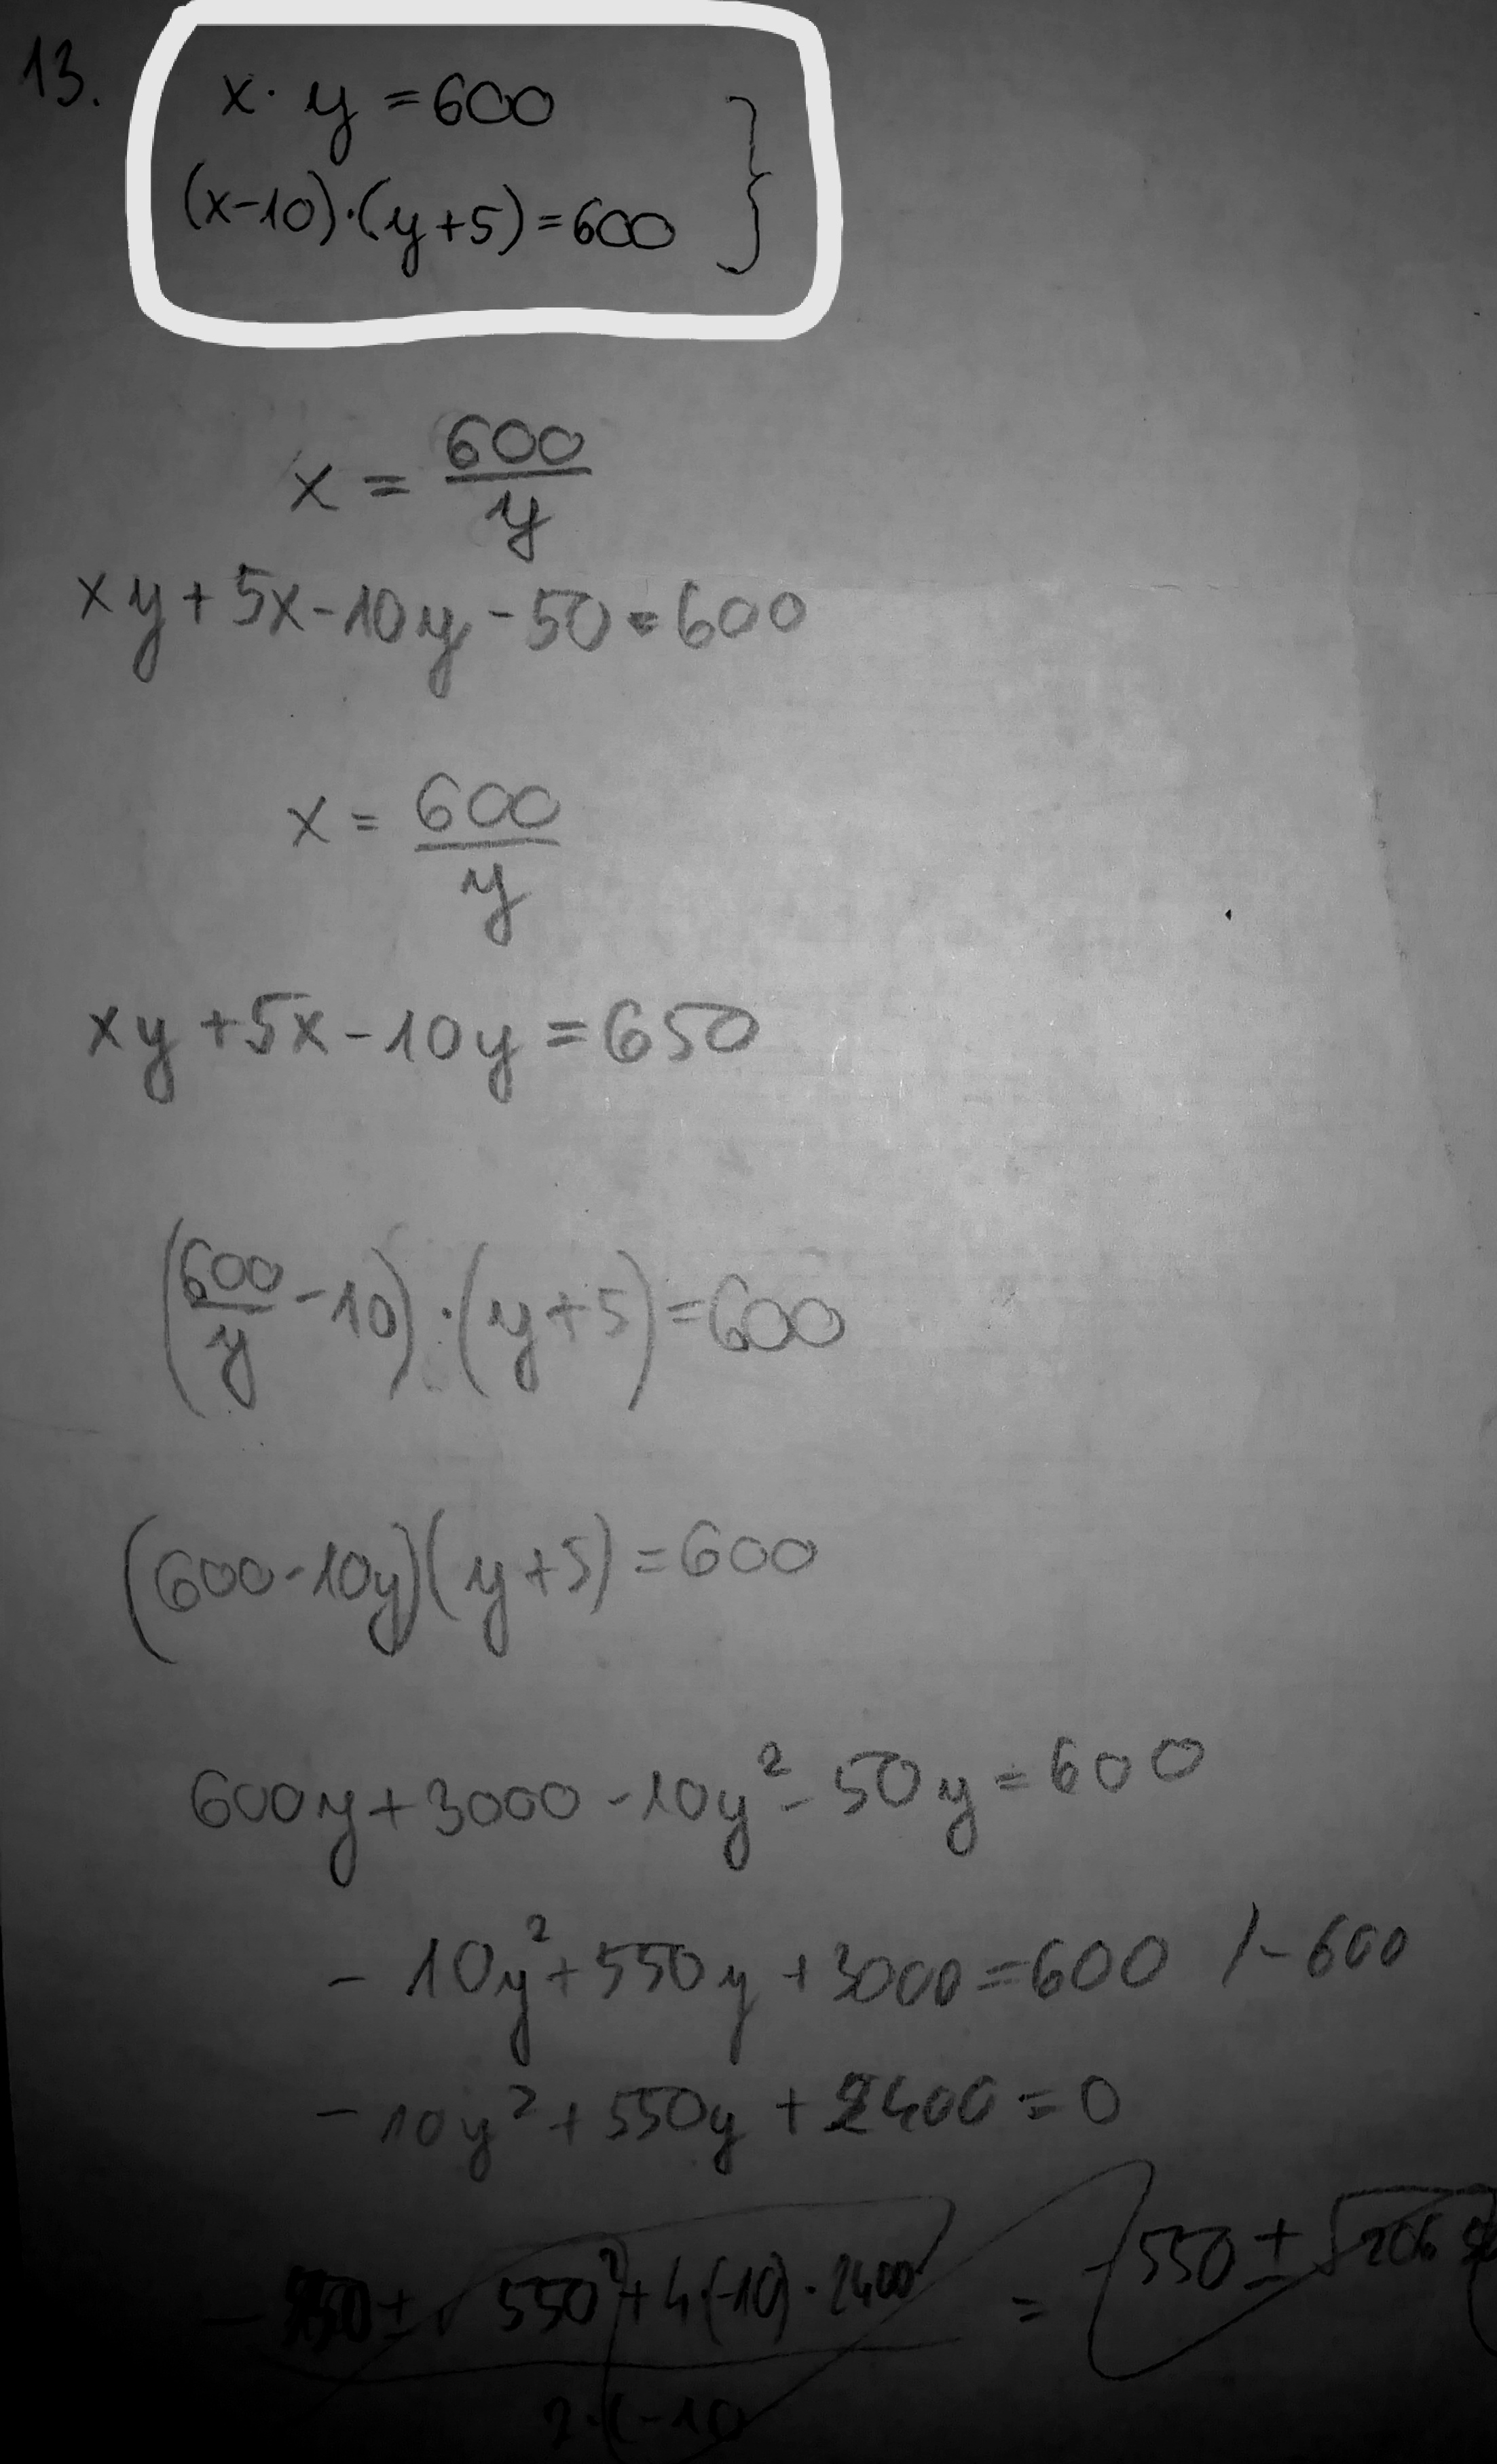 13.
x · y = 600
(x-10)·(y+5)=600 }
x = 600/y
xy+5x-10y-50=600
x = 600/y
xy+5x-10y=650
(600/y -10)·(y+5)=600
(600-10y)(y+5)=600
600y+3000-10y²-50y=600
-10y²+550y+3000=600 /-600
-10y²+550y+2400=0
-550± √550²+4·(-10)·2400 = -550±√206
2·(-10